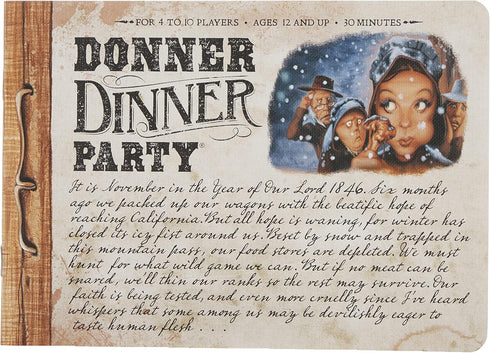 • FOR 4 TO 10 PLAYERS • AGES 12 AND UP • 30 MINUTES •
DONNER
DINNER
PARTY®
It is November in the Year of Our Lord 1846. Six months
ago we packed up our wagons with the beatific hope of
reaching California. But all hope is waning, for winter has
closed its icy fist around us. Beset by snow and trapped in
this mountain pass, our food stores are depleted. We must
hunt for what wild game we can. But if no meat can be
snared, we'll thin our ranks so the rest may survive. Our
faith is being tested, and even more cruelly since I've heard
whispers that some among us may be devilishly eager to
taste human flesh . . . .